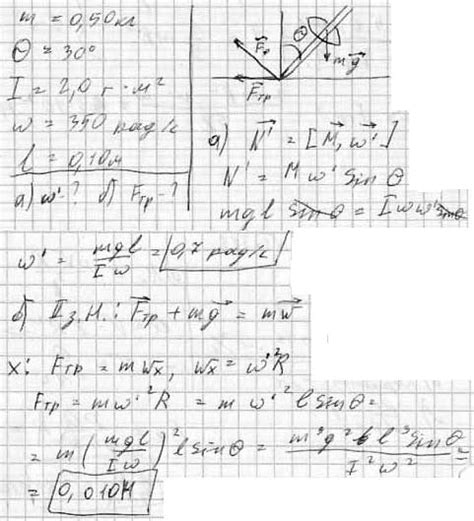 m = 0,50 кг
Θ = 30°
I = 2,0 г·м²
w = 350 рад/с
l = 0,10м
а) w'-? б) Fтр-?
Θ
F⃗р
mg⃗
F⃗тр
а) N⃗' = [M⃗, w⃗']
N' = M w' sin Θ
mgl sin Θ = I w w' sin Θ
w' = mgl / Iw = 0,7 рад/с
б) II з.Н.: F⃗тр + mg⃗ = mw⃗
x: Fтр = m wx, wx = w'²R
Fтр = m w'²R = m w'² l sin Θ =
= m (mgl / Iw)² l sin Θ = m³g² l³ sin Θ / I²w² =
= 0,010Н